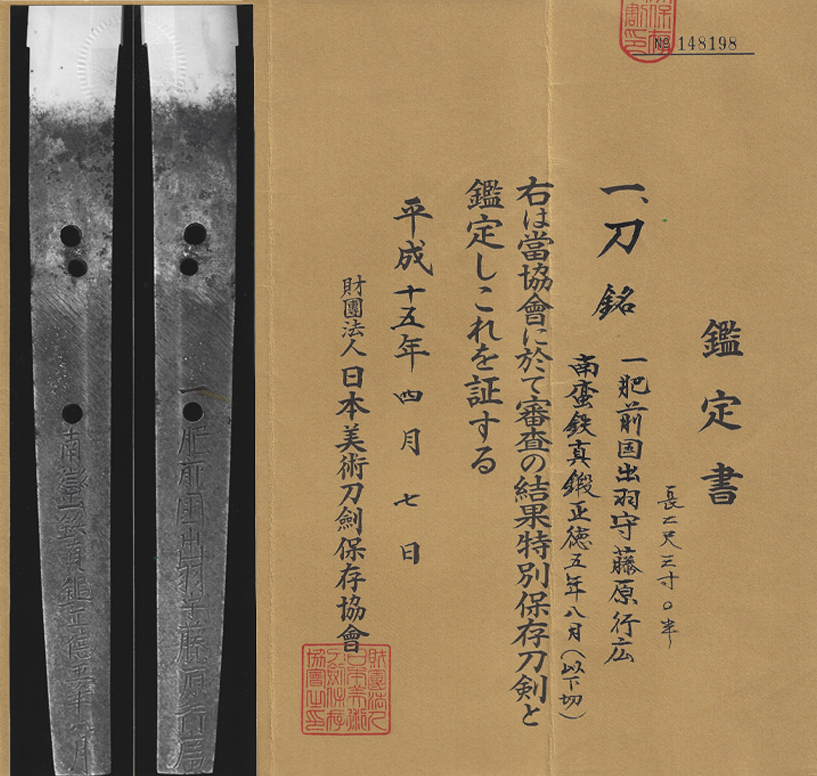 № 148198
鑑定書
長二尺三寸〇半
一、刀 銘
一肥前国出羽守藤原行広
南蛮鉄真鍛正徳五年八月(以下切)
右は當協會に於て審査の結果特別保存刀剣と
鑑定しこれを証する
平成十五年四月七日
財團法人日本美術刀劍保存協會
一肥前国出羽守藤原行廣